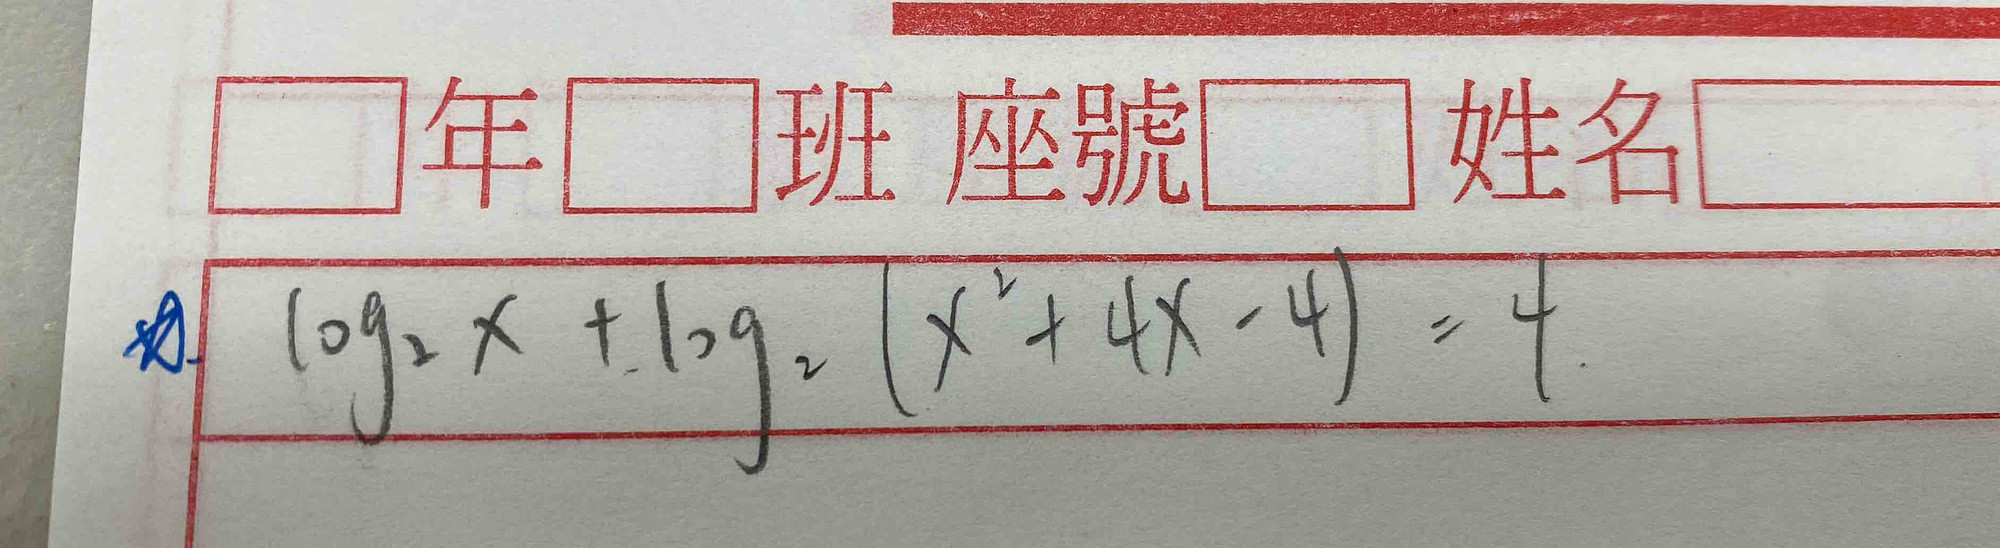 年 班 座號 姓名
log₂ x + log₂ (x² + 4x - 4) = 4